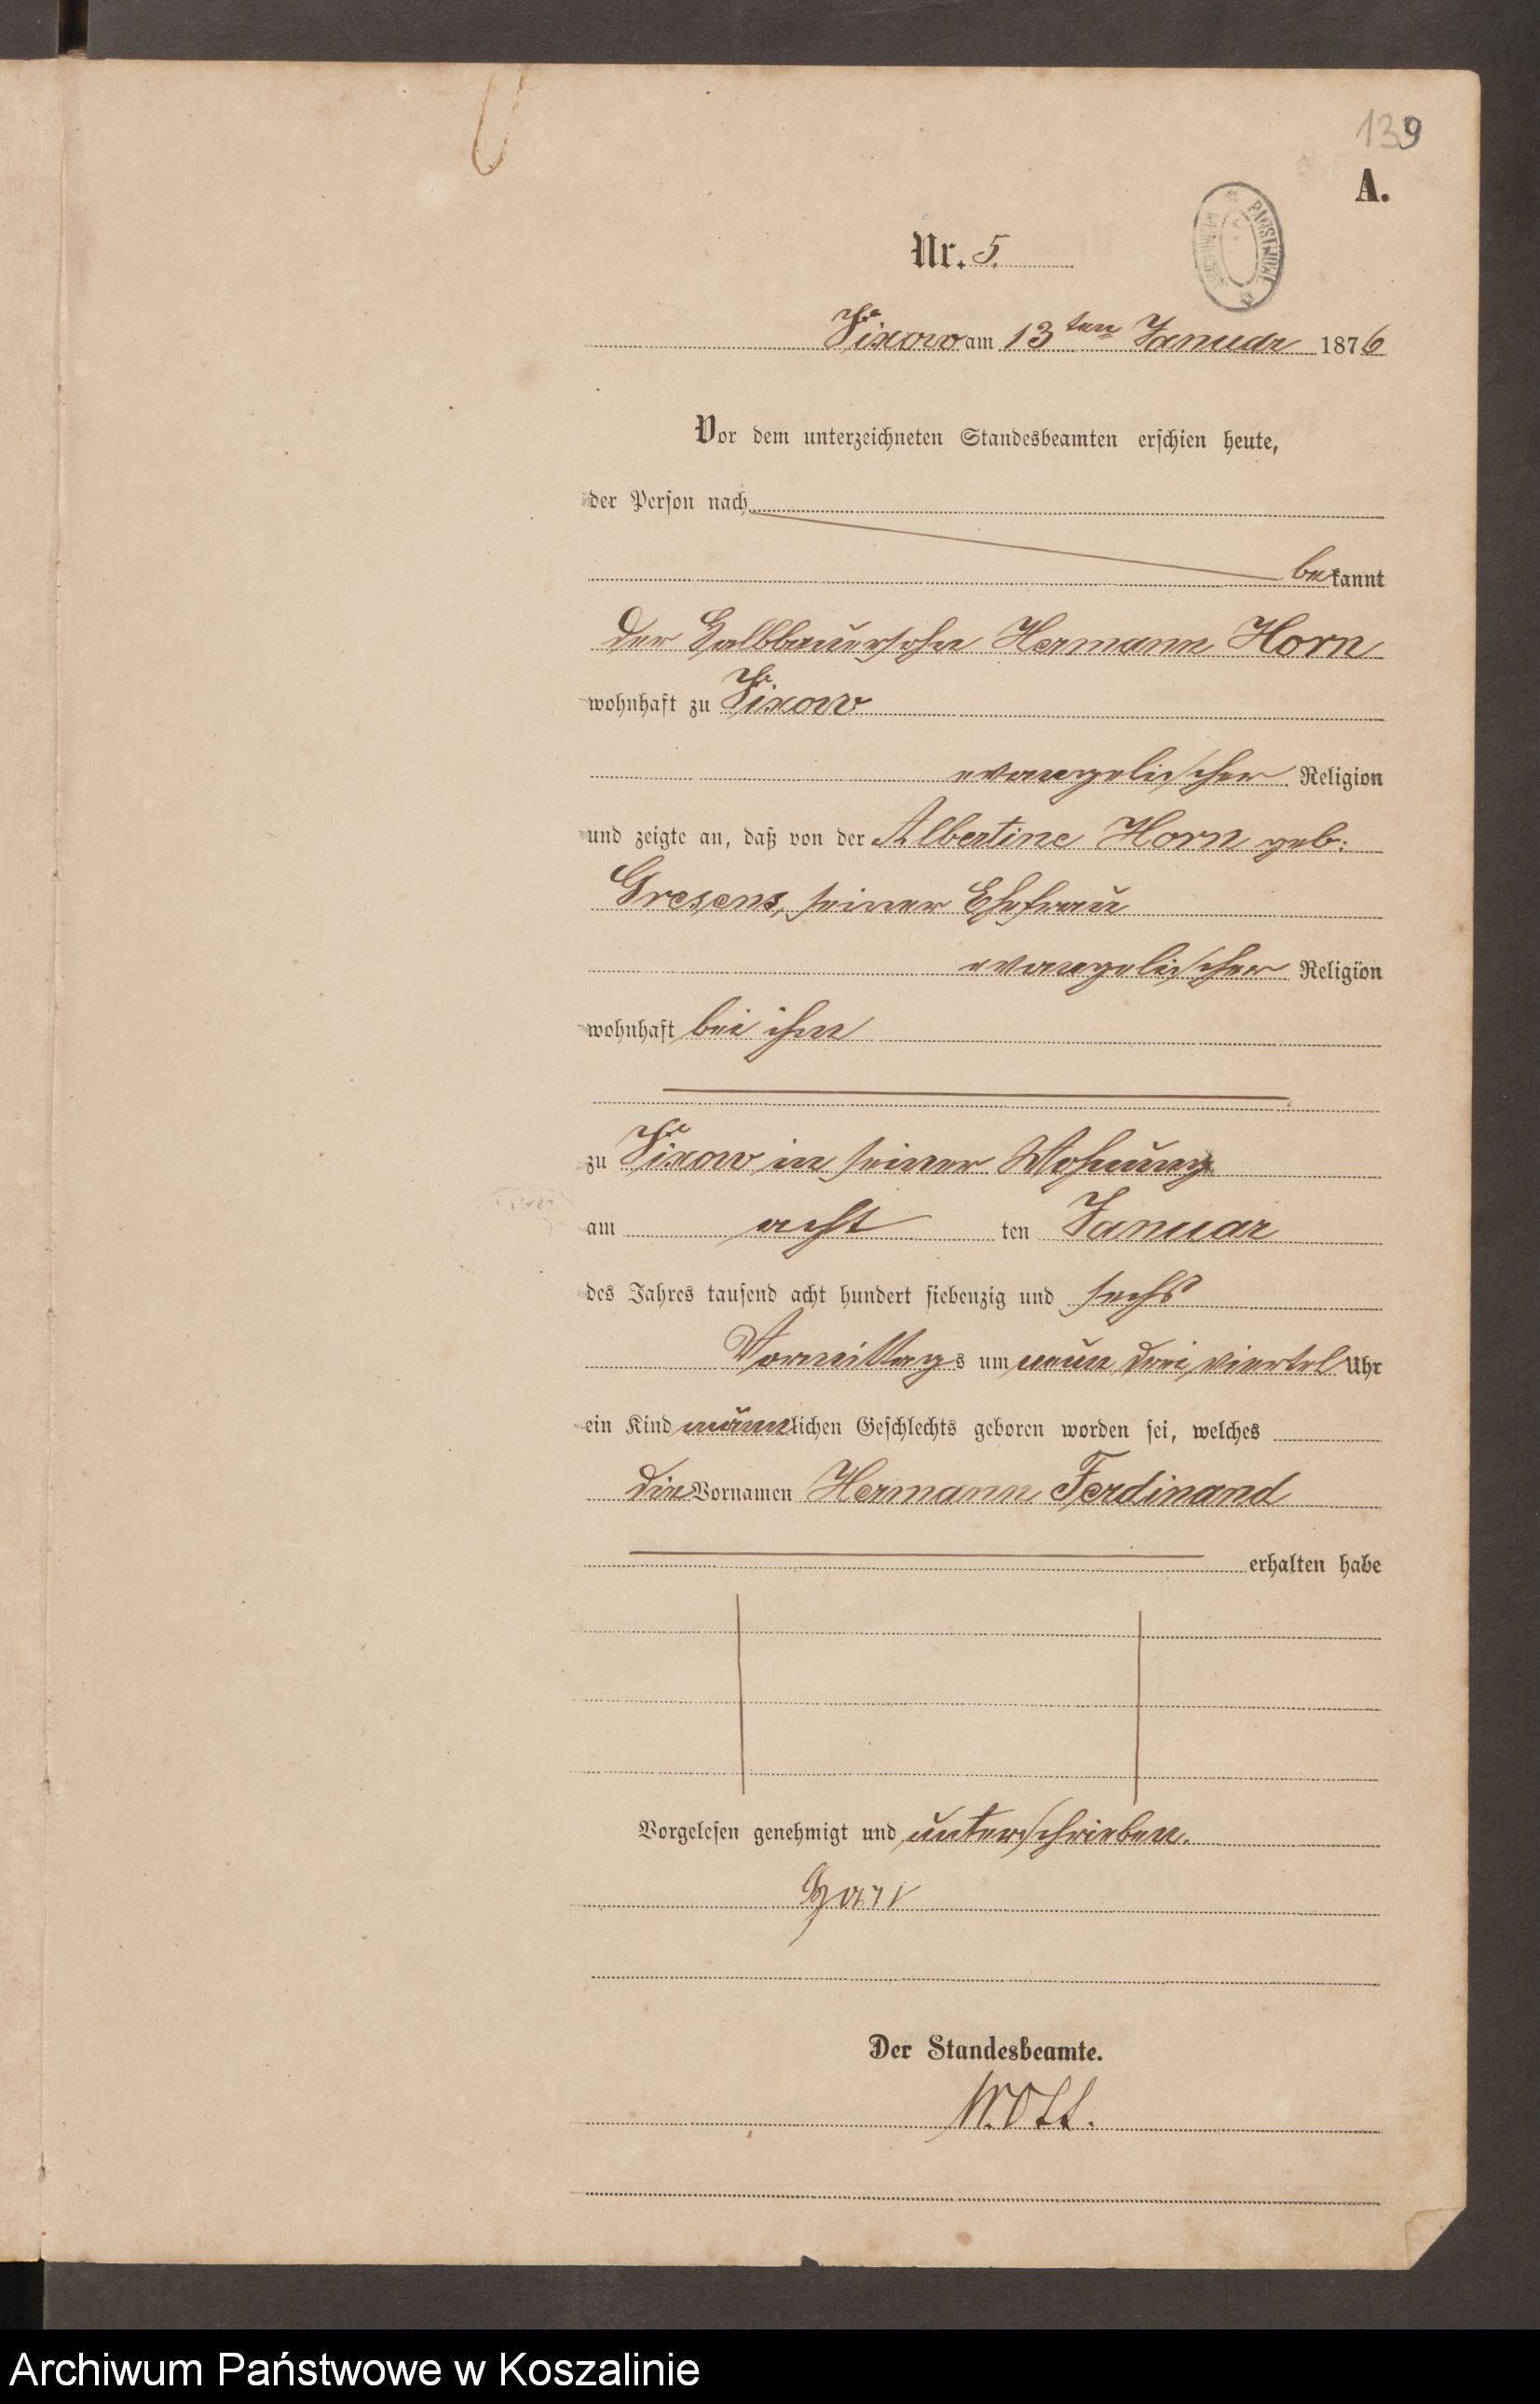 139
A.
Nr. 5.
Vixow am 13ten Januar 1876
Vor dem unterzeichneten Standesbeamten erschien heute,
der Person nach
bekannt
der Halbbauersohn Hermann Horn
wohnhaft zu Vixow
evangelischer Religion
und zeigte an, daß von der Albertine Horn geb:
Gresens, seiner Ehefrau
evangelischer Religion
wohnhaft bei ihm
zu Vixow in seiner Wohnung
am acht ten Januar
des Jahres tausend acht hundert siebenzig und sechs
Vormittags um neun drei viertel Uhr
ein Kind männlichen Geschlechts geboren worden sei, welches
die Vornamen Hermann Ferdinand
erhalten habe
Vorgelesen genehmigt und unterschrieben.
Horn
Der Standesbeamte.
Archiwum Państwowe w Koszalinie